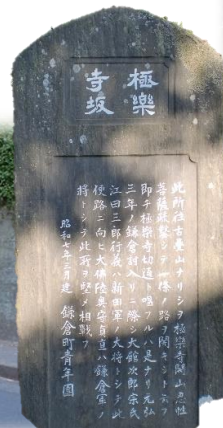 極樂
寺坂
此所往古疊山ナリシヲ極樂寺開山忍性
菩薩疏鑿シテ一條ノ路ヲ開キシト云フ
即チ極樂寺切通ト唱フルハ是ナリ元弘
三年ノ鎌倉討入ニ際シ大館次郎宗氏
江田三郎行義ハ新田軍ノ大將トシテ此
便路ニ向ヒ大佛陸奥守貞直ハ鎌倉軍ノ
將トシテ此所ヲ堅メ相戰フ
昭和七年三月建 鎌倉町青年團